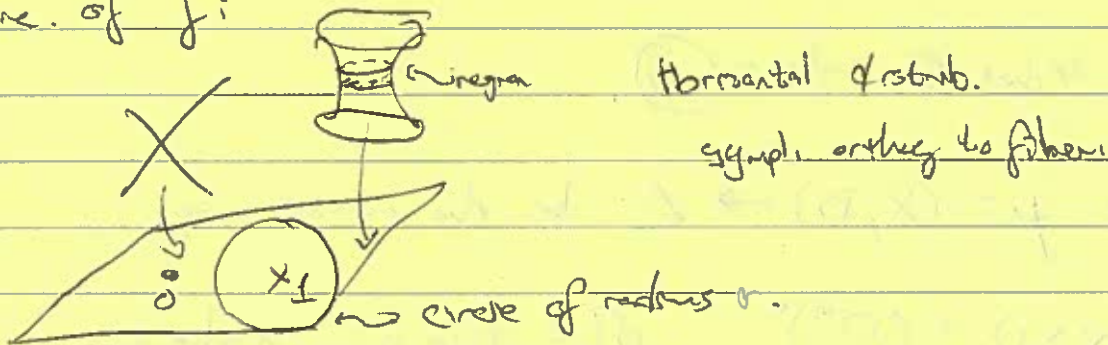 of f:
region
Horizontal distrib.
sympl. orthog to fibers.
0
x 1
circle of radius r.